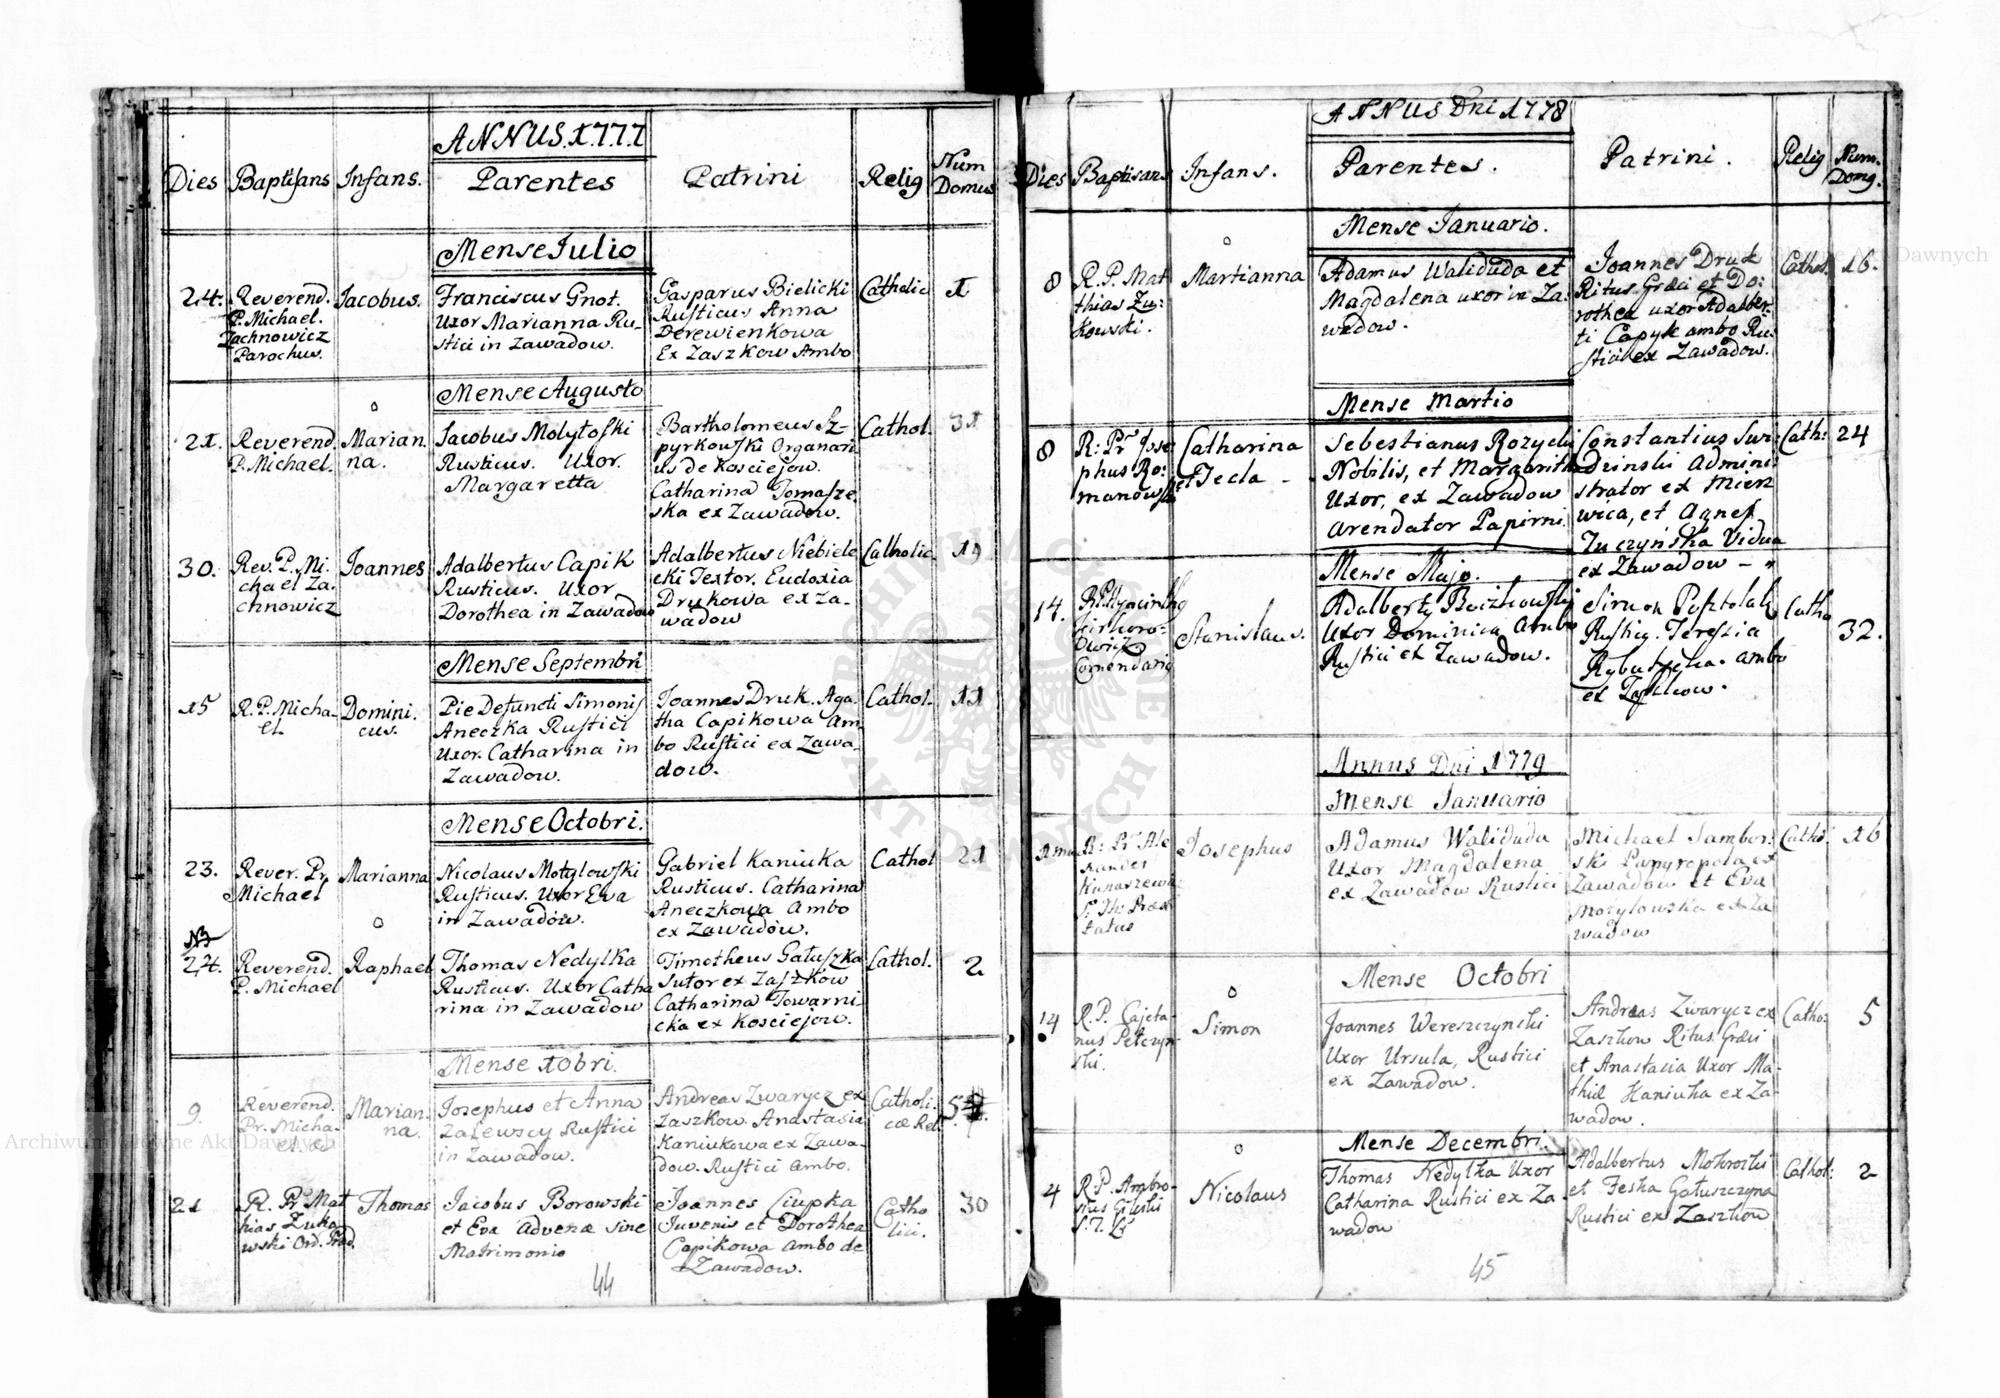 ANNUS.1777
Dies Baptisans Infans. Parentes Patrini Relig Num Domus
Mense Julio
24. Reverend. P. Michael. Zachnowicz Parochus.
Jacobus.
Franciscus Gnot.
Uxor Marianna Ru-
stici in Zawadow.
Gasparus Bielicki
Rusticus Anna
Derewienkowa
Ex Zaszkow Ambo
Catholic
1
Mense Augusto
21.
Reverend.
P. Michael.
Marian.
na.
Jacobus Molytoski
Rusticus. Uxor.
Margaretta
Bartholomeus Sz-
pyrkowski Organari
us de Kosciejow.
Catharina Tomasze
ska ex Zawadow.
Cathol.
31
30.
Rev. P. Mi.
chael Za.
chnowicz
Joannes
Adalbertus Capik
Rusticus. Uxor
Dorothea in Zawadow
Adalbertus Niebiele
cki Textor. Eudoxia
Drukowa ex Za-
wadow
Catholic
19
Mense Septembri
15
R. P. Micha-
el
Domini.
cus.
Pie Defuncti Simonis
Aneczka Rustici
Uxor. Catharina in
Zawadow.
Joannes Druk. Aga-
tha Capikowa Am-
bo Rustici ex Zawa-
dow.
Cathol.
11
Mense Octobri.
23.
Rever. Pr
Michael
Marianna
Nicolaus Motylowski
Rusticus. Uxor Eva
in Zawadow.
Gabriel Kaniuka
Rusticus. Catharina
Aneczkowa Ambo
ex Zawadow.
Cathol
21
24.
Reverend.
P. Michael
Raphael
Thomas Nedylka
Rusticus. Uxor Catha
rina in Zawadow
Timotheus Gałuszka
Sutor ex Zaszkow
Catharina Towarni
cka ex Kosciejow.
Cathol.
2
Mense Xbri.
9.
Reverend.
Pr. Micha-
Marian.
na.
Josephus et Anna
Zalewscy Rustici
in Zawadow.
Andreas Zwarycz ex
Zaszkow. Anastasia
Kaniukowa ex Zawa-
dow. Rustici ambo.
Catholi.
cæ Rel.
5
21
R. Pr Mat
hias Zuko
wski Ord. Præd.
Thomas
Jacobus Borowski
et Eva Advenæ sine
Matrimonio
Joannes Ciupka
Juvenis et Dorothea
Capikowa Ambo de
Zawadow.
Catho
lici.
30
44
ANNUS Dni 1778
Dies Baptisans Infans. Parentes. Patrini. Relig Num. Domg.
Mense Januario.
8
R. P. Mat
thias Zu:
kowski.
Martianna
Adamus Waliduda et
Magdalena uxor in Za:
wadow.
Joannes Druk
Ritus Græci et Do:
rothea uxor Adalber-
ti Capyk ambo Ru:
stici ex Zawadow.
Cathol.
16.
Mense Martio
8
R: Pr Jose
phus Ro:
manowski
Catharina
et Tecla -
Sebestianus Rozycki
Nobilis, et Margarith
Uxor, ex Zawadow
Arendator Papirni
Constantius Swi
drinski Admini
strator ex Mierz
wica, et Agnes
Zuczynska Vidua
ex Zawadow -
Cath:
24
Mense Majo.
14.
Comendarig
Stanislaus.
Uxor Dominica Ambo
Rustici ex Zawadow.
Simon
Rusticg. Teressia
ambo
ex Zaszkow.
Catho
32.
Annus Dni 1779
Mense Januario
R: Pr Ale
xander
Josephus
Adamus Waliduda
Uxor Magdalena
ex Zawadow Rustici
Michael Sambor:
ski Papyropola ex
Zawadow et Eva
Motylowska ex Za
wadow
Cathol.
16
Mense Octobri
14
R. P. Cajeta-
nus Petczyn-
ski.
Simon
Joannes Wereszczynski
Uxor Ursula, Rustici
ex Zawadow.
Andreas Zwarycz ex
Zaszkow Ritus Græci
et Anastasia Uxor Ma-
thiæ Kaniuka ex Za-
wadow.
Catho:
5
Mense Decembri.
4
R. P. Ambro-
sius
Nicolaus
Thomas Nedylka Uxor
Catharina Rustici ex Za-
wadow
Adalbertus Mokrozki
et Feska Gałuszczyna
Rustici ex Zaszkow
Cathol:
2
45
Archiwum Główne Akt Dawnych
Archiwum Główne Akt Dawnych
ARCHIWUM GŁÓWNE · AKT DAWNYCH ·